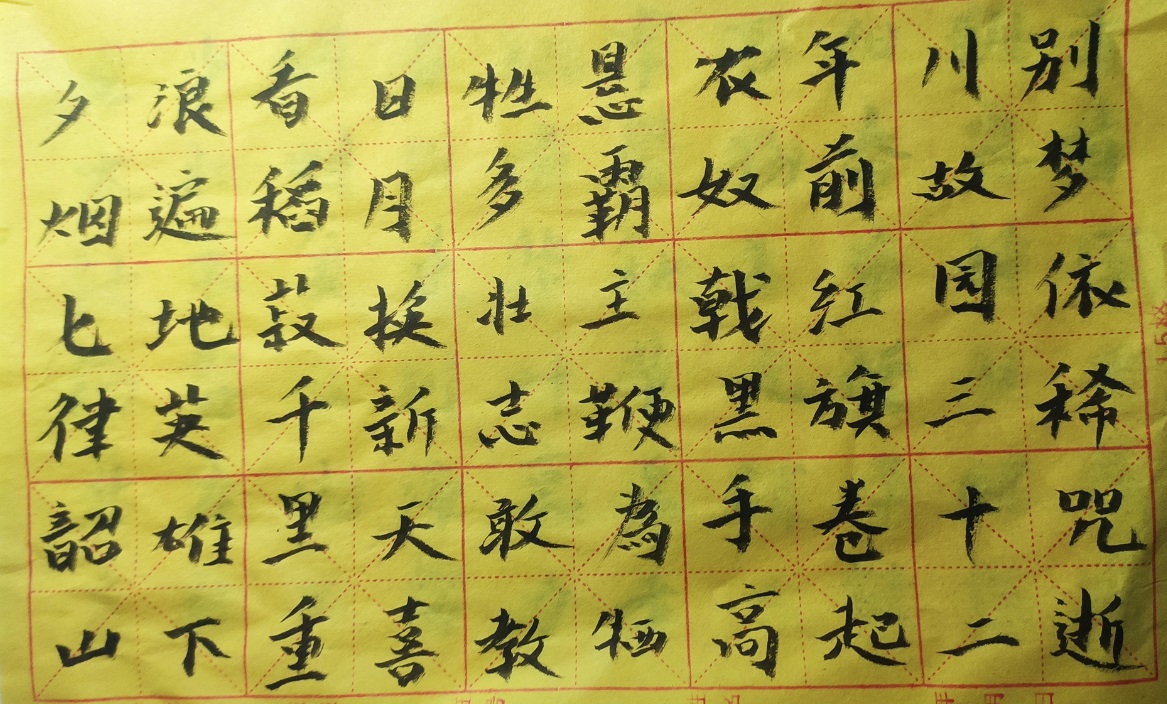 别梦依稀咒逝
川故园三十二
年前红旗卷起
农奴戟黑手高
悬霸主鞭為牺
牲多壮志敢教
日月换新天喜
看稻菽千里重
浪遍地英雄下
夕烟七律韶山